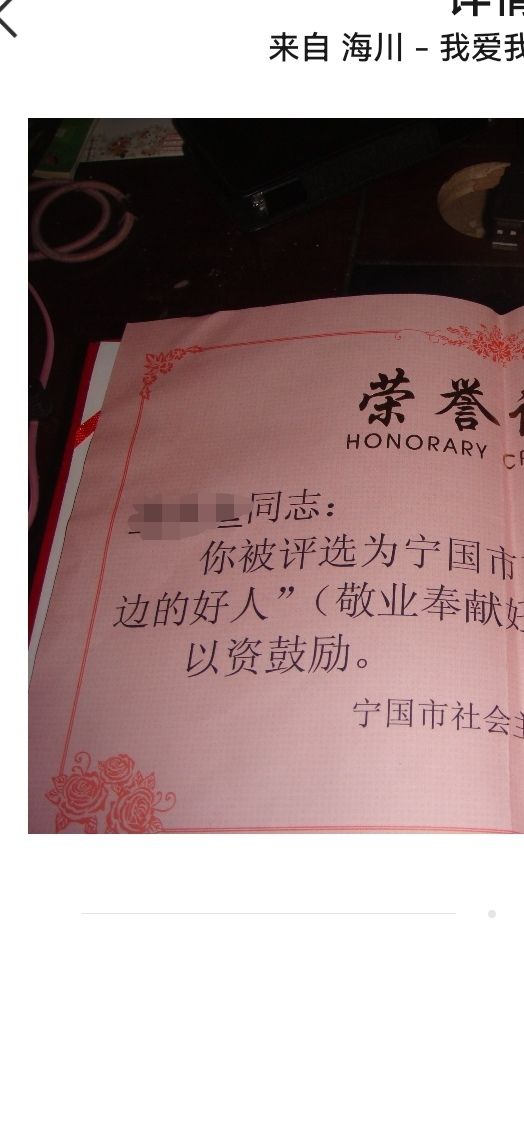 详情
来自 海川 - 我爱我
荣誉
HONORARY
同志：
你被评选为宁国市
边的好人”（敬业奉献好
以资鼓励。
宁国市社会主